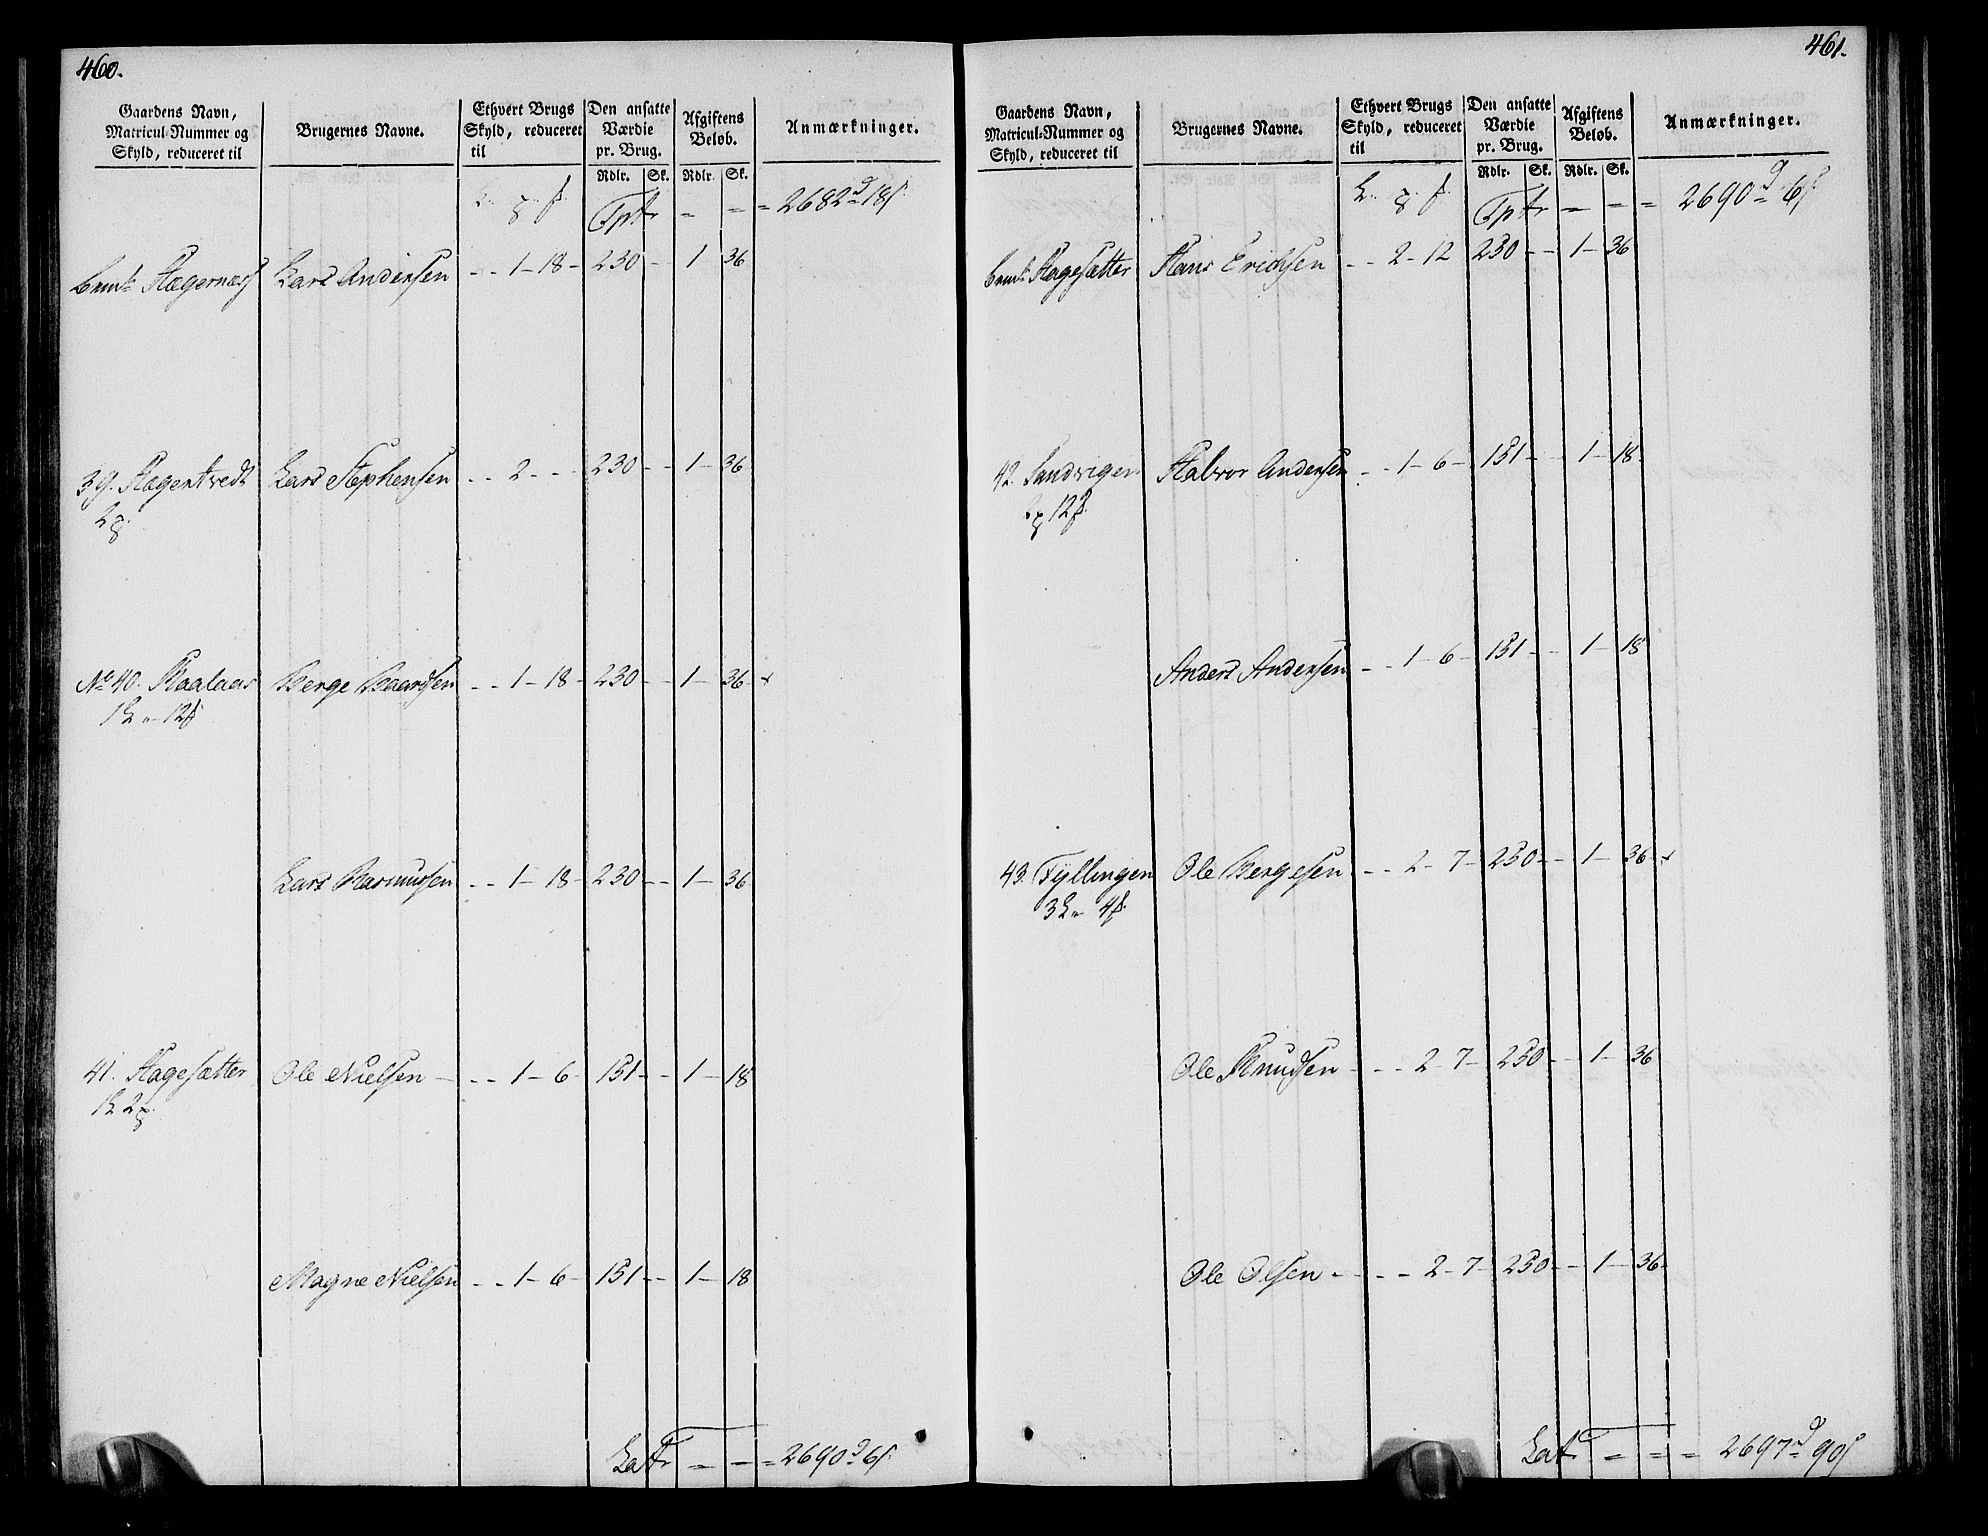 460.
Gaardens Navn, Matricul-Nummer og Skyld, reduceret til
Brugernes Navne.
Ethvert Brugs Skyld, reduceret til
Den ansatte Værdie pr. Brug.
Afgiftens Beløb.
Anmærkninger.
Rdlr. Sk. Rdlr. Sk.
Tptr = = = 2682 18
Lars Andersen - - 1 - 18 - 230 - - 1 36
39. Hagentvedt Lars Stephensen - - 2 - - - 230 - - 1 - 36
2
No 40. Lars Børge Baardsen - - 1 - 18 - 230 - - 1 - 36 -
1 - 12
Lars Rasmussen - - 1 - 18 - 230 - - 1 - 36
41. Hagesætter Ole Nielsen - - - 1 - 6 - 151 - - 1 - 18
1 2
Magne Nielsen - - 1 - 6 - 151 - - 1 - 18
Latr = = = 2690 6
461.
Gaardens Navn, Matricul-Nummer og Skyld, reduceret til
Brugernes Navne.
Ethvert Brugs Skyld, reduceret til
Den ansatte Værdie pr. Brug.
Afgiftens Beløb.
Anmærkninger.
Rdlr. Sk. Rdlr. Sk.
Tptr = = = 2690 6
Hagesætter Hans Erichsen - - 2 - 12 250 - - 1 - 36
42. Sandvigen Halvor Andersen - - 1 - 6 - 151 - - 1 - 18
12
Anders Andersen - - 1 - 6 - 151 - - 1 - 18
43. Fyllingen Ole Børgesen - - 2 - 7 - 250 - - 1 - 36
3 4
Ole Knudsen - - - 2 - 7 - 250 - - 1 - 36
Ole Olsen - - - - 2 - 7 - 250 - - 1 - 36
Latr = = = 2697 90